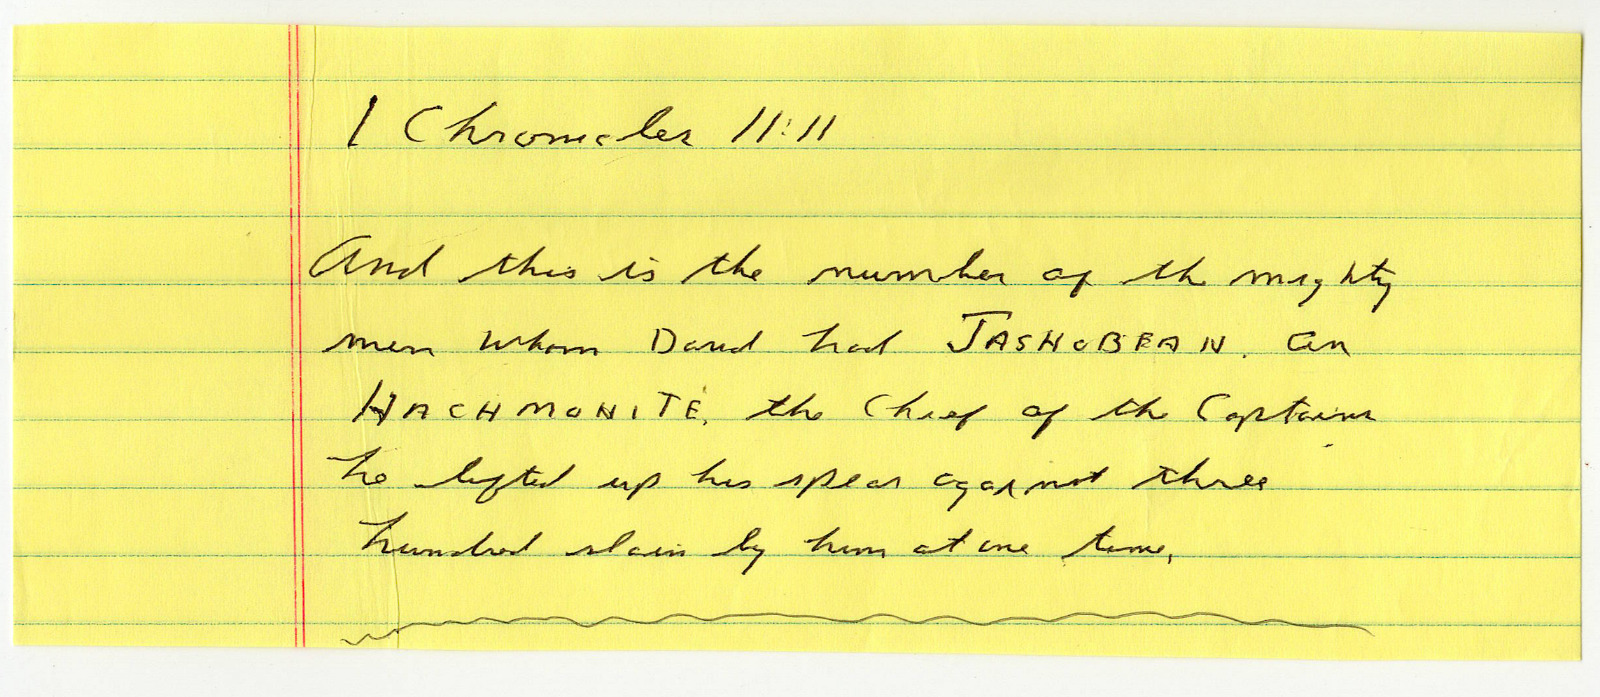 1 Chronicles 11:11
And this is the number of the mighty
men whom David had JASHOBEAN. an
HACHMONITE, the Chief of the Captains
he lifted up his spear against three
hundred slain by him at one time,